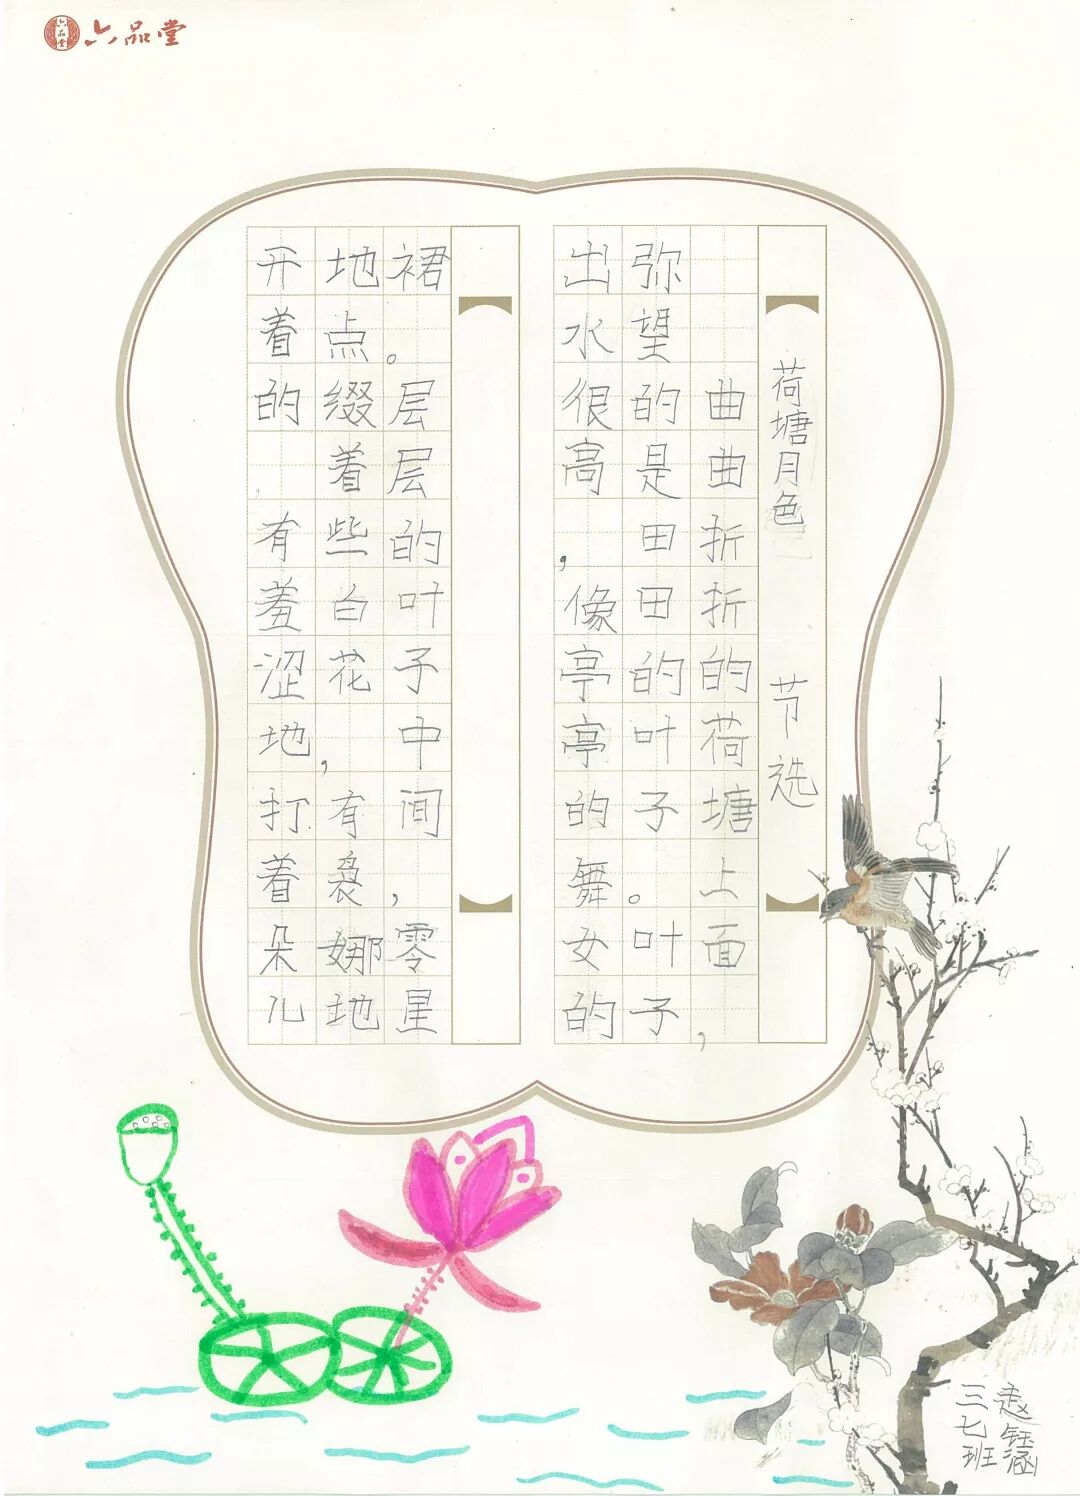 六品堂
六品堂
荷塘月色 节选
曲曲折折的荷塘上面,
弥望的是田田的叶子。叶子
出水很高,像亭亭的舞女的
裙。层层的叶子中间,零星
地点缀着些白花,有袅娜地
开着的 有羞涩地打着朵儿
三七班
赵钰涵